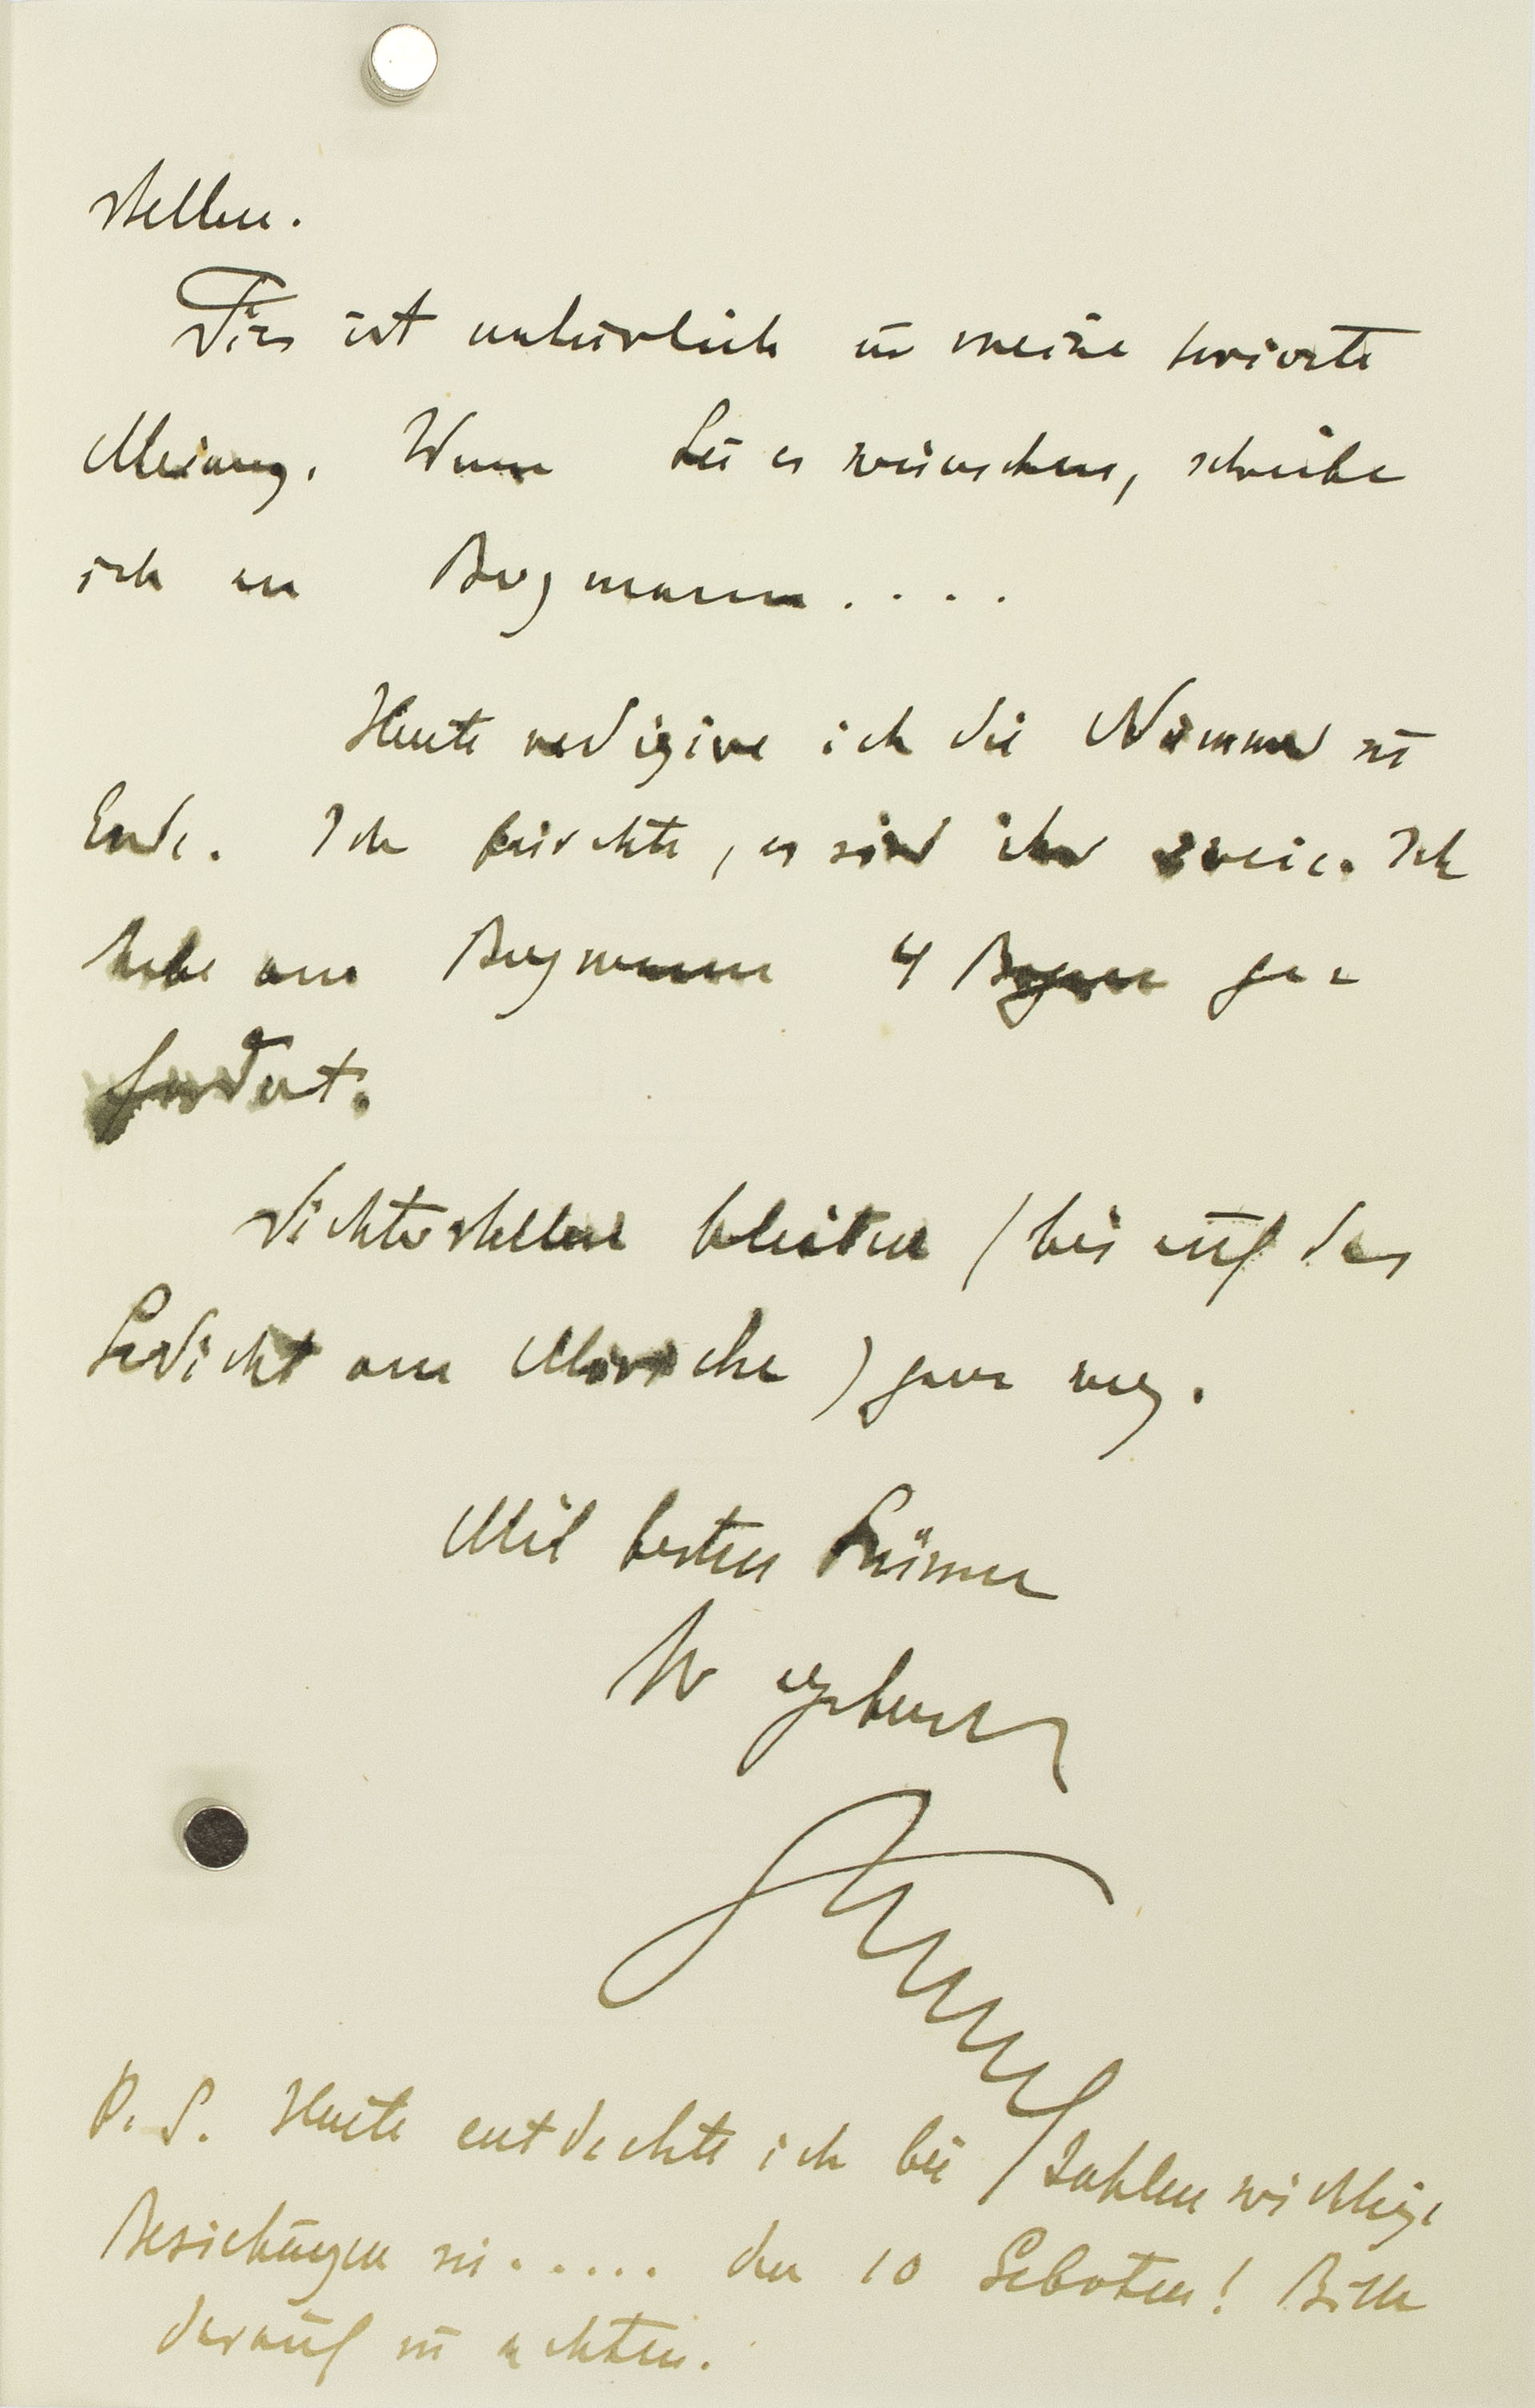 stellen.
Dies ist natürlich nur meine private
Meinung. Wenn Sie es wünschen, schreibe
ich an Bergmann....
Heute redigire ich die Nummer zu
Ende. Ich fürchte, es sind ihr zwei. Ich
habe an Bergmann 4 Bogen ge-
sendet.
Dichterstellen bleiben (bis auf das
Gedicht am Marsche) ganz weg.
Mit besten Grüssen
Ihr ergebener
P.S. Heute entdeckte ich bei Zahlen wichtige
Beziehungen zu..... den 10 Geboten! Bitte
darauf zu achten.